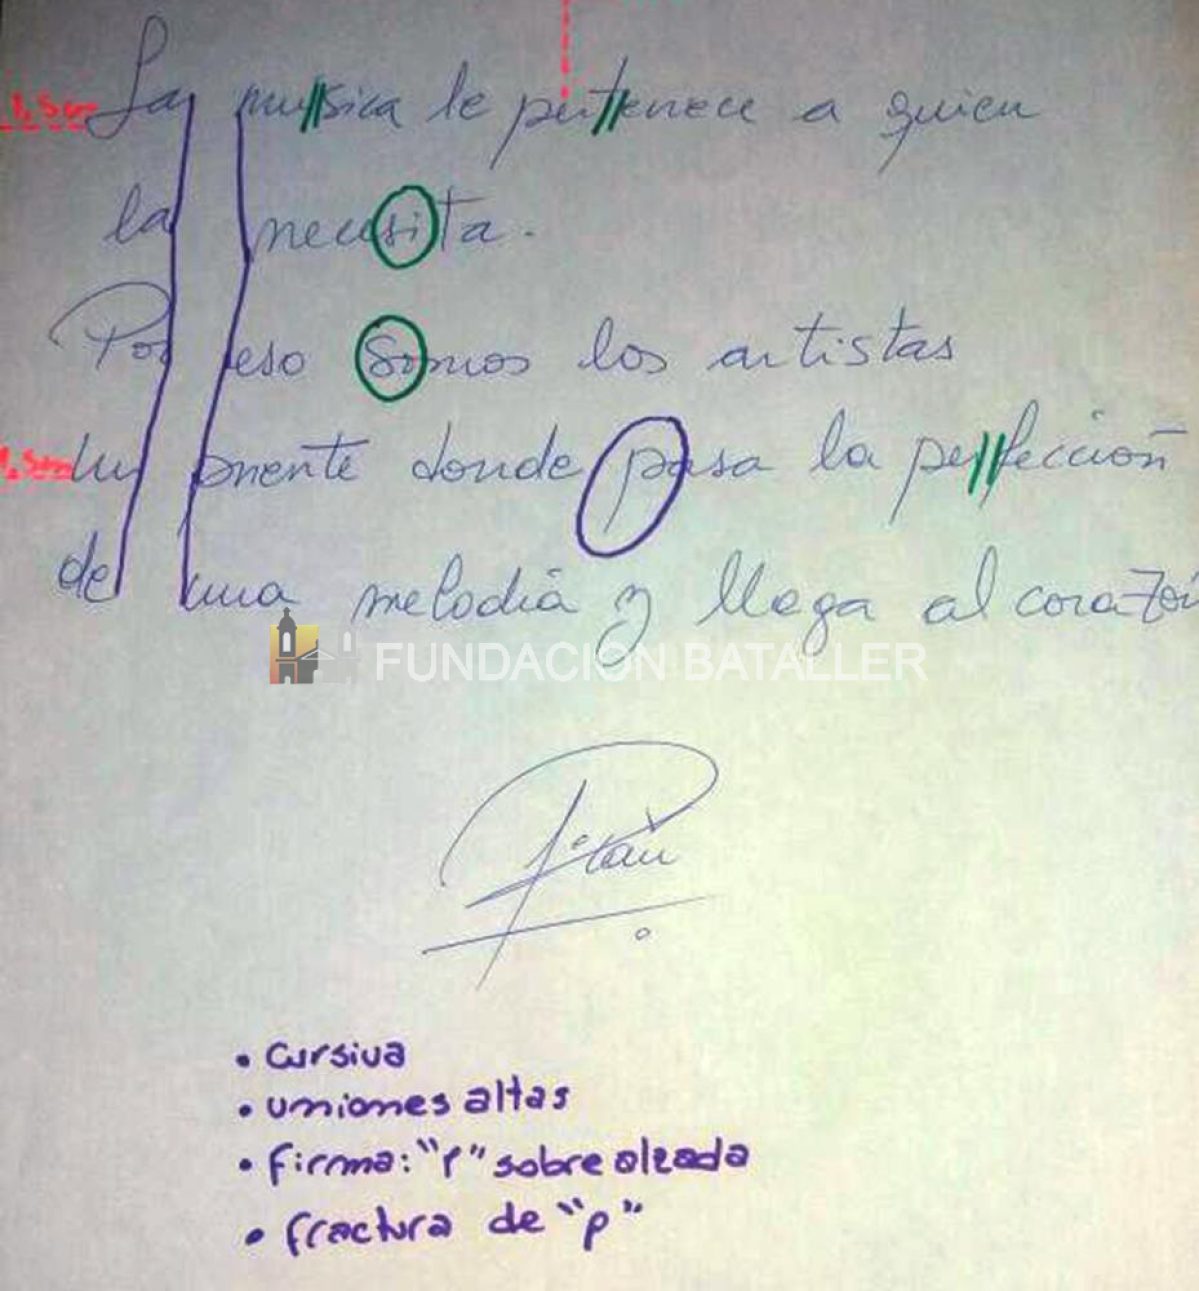 1,5cm La musica le pertenece a quien
la necesita.
Por eso Somos los artistas
1,5cm un puente donde pasa la perfección
de una melodiá y llega al corazón
FUNDACION BATALLER
• Cursiva
• uniones altas
• firma: "P" sobrealzada
• fractura de "p"